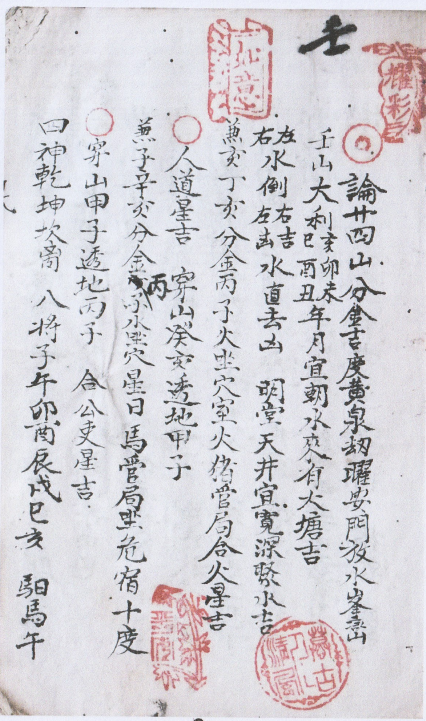 壬
論廿四山分金吉度黃泉劫曜門放水峯巒
壬山大利亥卯未巳酉丑年月宜朝水來有大塘吉
左水倒右吉右水倒左凶水直去凶 明堂天井宜寬深聚水吉
兼亥丁亥分金丙子火坐穴室火猪管局合火星吉
人道星吉 穿山癸亥透地甲子
兼子辛亥分金丙子水坐穴星日馬管局坐危宿十度
穿山甲子透地丙子 合公吏星吉
四神乾坤坎离 八將子午卯酉辰戌巳亥 馹馬午
如意
耀彩